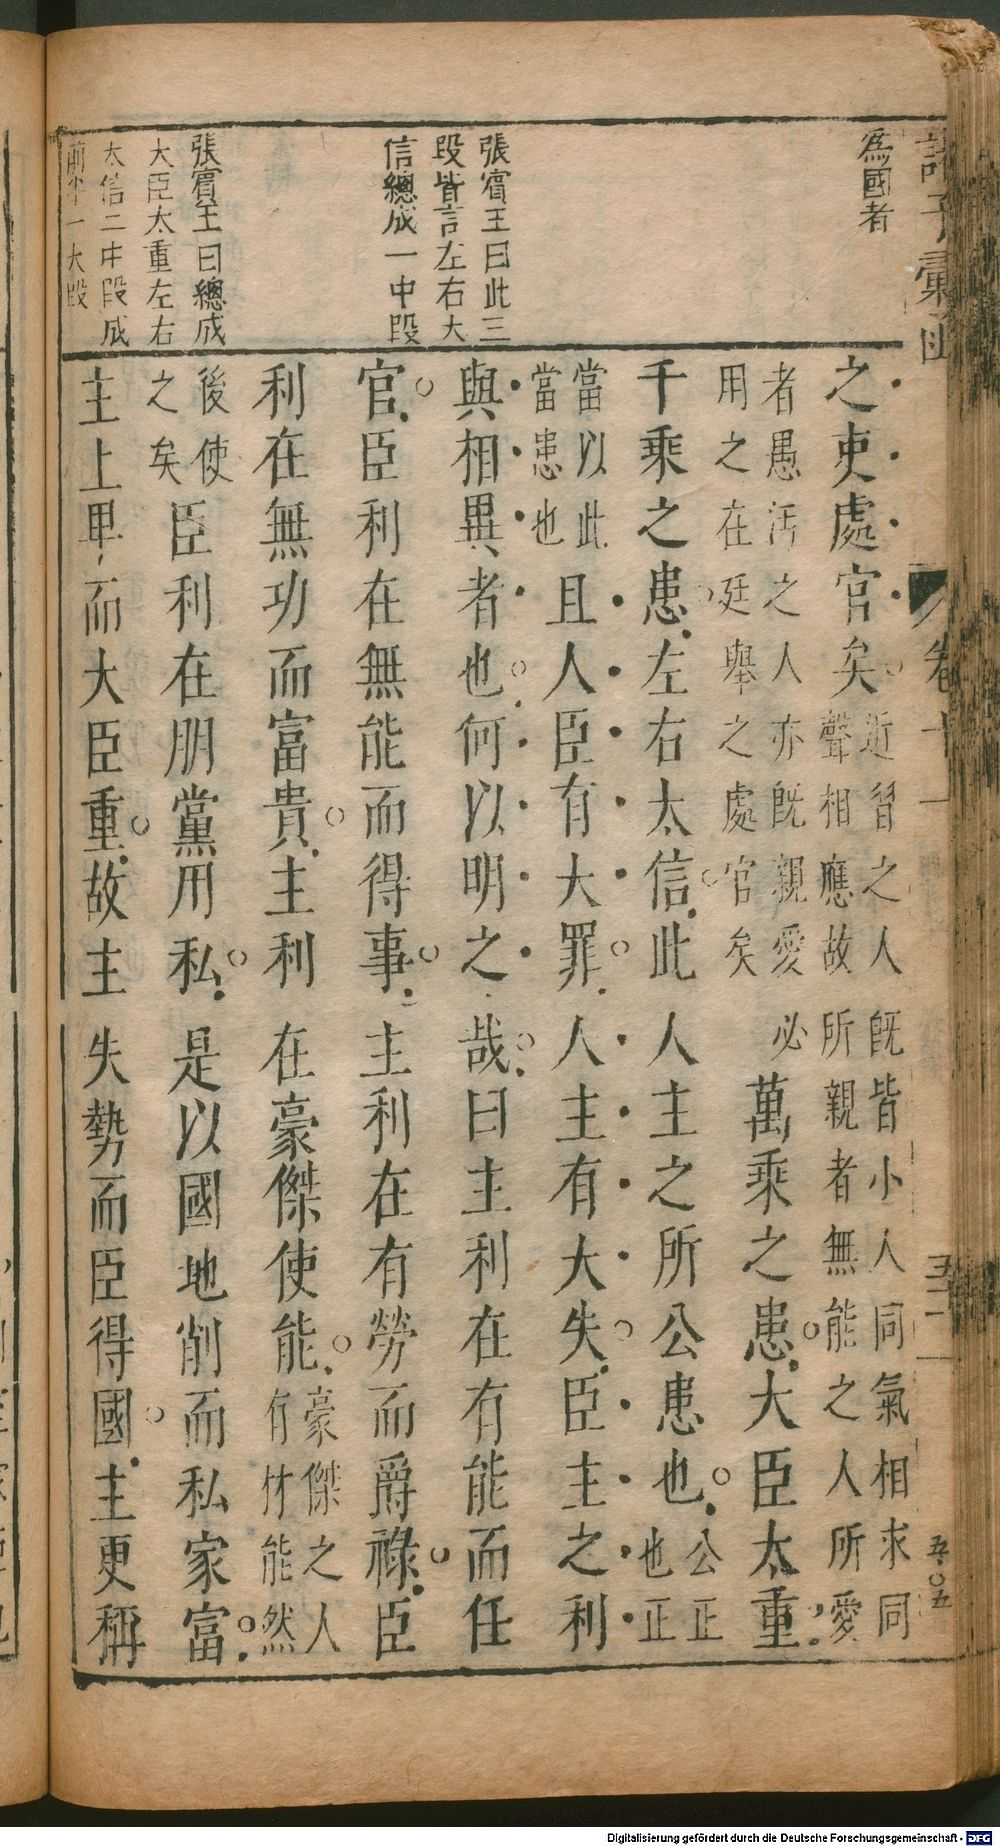 諸子彙函
卷十一
為國者
張賓王曰此三
段皆言左右大
信總成一中段
張賓王曰總成
大臣太重左右
太信二中段成
前半一大段
之吏處官矣近習之人既皆小人同氣相求同聲相應故所親者無能之人所愛
者愚汚之人亦既親愛必用之在廷舉之處官矣萬乘之患大臣太重
千乘之患左右太信此人主之所公患也公正也正
當以此當患也且人臣有大罪人主有大失臣主之利
與相異者也何以明之哉曰主利在有能而任
官臣利在無能而得事主利在有勞而爵祿臣
利在無功而富貴主利在豪傑使能豪傑之人有材能然
後使之矣臣利在朋黨用私是以國地削而私家富
主上卑而大臣重故主失勢而臣得國主更稱
Digitalisierung gefördert durch die Deutsche Forschungsgemeinschaft - DFG